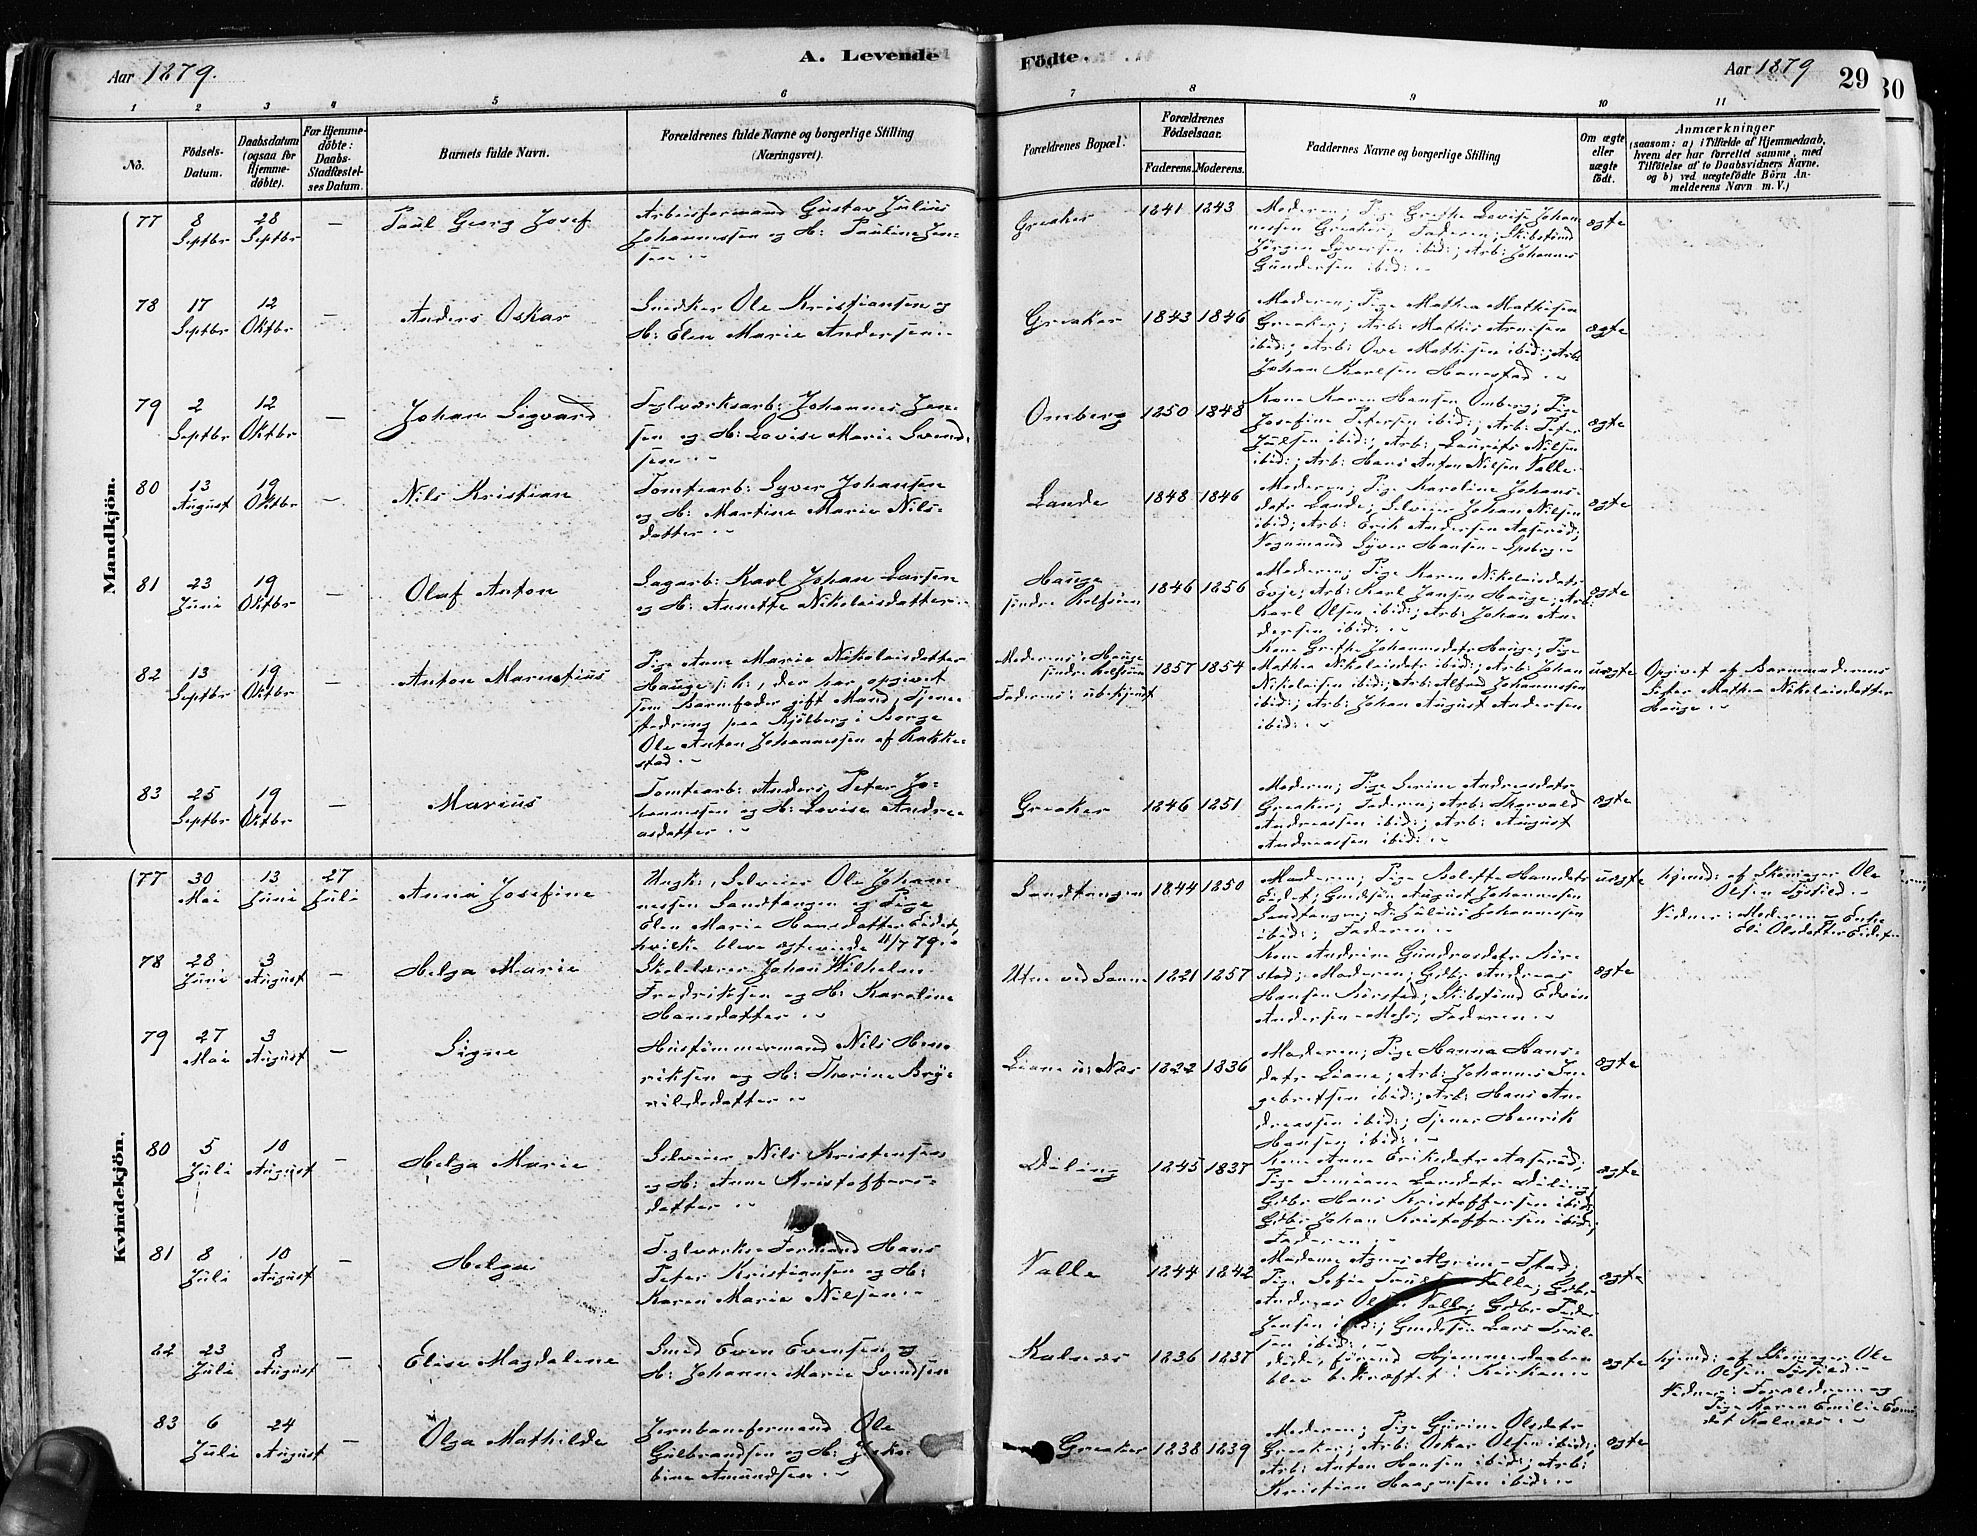 Aar 1879.
A. Levende
Födte.
Aar 1879
29
30
1 2 3 4 5 6 7 8 9 10 11
No.
Födsels-
Datum.
Daabsdatum
(ogsaa for
Hjemme-
döbte).
For Hjemme-
döbte:
Daabs-
Stadfæstel-
ses Datum.
Barnets fulde Navn.
Forældrenes fulde Navne og borgerlige Stilling
(Næringsvei).
Forældrenes Bopæl.
Forældrenes
Födselsaar.
Faderens. Moderens.
Faddernes Navne og borgerlige Stilling
Om ægte
eller
uægte
födt.
Anmærkninger
(saasom: a) i Tilfælde af Hjemmedaab,
hvem der har forrettet samme, med
Tilföielse af to Daabsvidners Navne.
og b) ved uægtefödte Börn An-
melderens Navn m. V.)
Mandkjön.
77
8
Septbr
28
Septbr
—
Paul Georg Josef
Arbeisformand Gustav Julius
Johannessen og H: Pauline Jen-
sen
Greaker
1841 1843
Moderen; Pige Grethe Lovise Johan
nessen Greaker; Faderen; Skibstømd
Jørgen Syversen ibid:; Arb: Johannes
Gundersen ibid:
ægte
78
17
Septbr
12
Oktbr
—
Anders Oskar
Snedker Ole Kristiansen og
H: Elen Marie Andersen
Greaker
1843 1846
Moderen; Pige Mathea Mathisen
Greaker; Arb: Mathis Arnesen
ibid:; Arb: Ove Mathisen ibid:; Arb:
Johan Karlsen Hanestad
ægte
79
2
Septbr
12
Oktbr
—
Johan Sigvard
Teglværksarb: Johannes Jen-
sen og H: Lovise Marie Svend-
sen
Omberg
1850 1848
Kone Karen Hansen Omberg; Pige
Josefine Petersen ibid:; Arb: Peter
Julsen ibid:; Arb: Laurits Nilsen
ibid:; Arb: Hans Anton Nilsen Valle
ægte
80
13
August
19
Oktbr
—
Nils Kristian
Tomtearb: Syver Johansen
og H: Martine Marie Nils-
datter
Lande
1848 1846
Moderen; Pige Karoline Johans-
datr Lande; Selveier Johan Nilsen
ibid; Arb: Erik Andersen Aaserød;
Vognmand Syver Hansen - Spsbrg
ægte
81
23
Juni
19
Oktbr
—
Olaf Anton
Sagarb: Karl Johan Larsen
og H: Annette Nikolaisdatter
Hauge
søndre Rolfsøen
1846 1856
Moderen; Pige Karen Nikolaisdatr
Evje; Arb: Karl Jansen Hauge; Arb:
Karl Olsen ibid:; Arb: Johan An-
dersen ibid:
ægte
82
13
Septbr
19
Oktbr
—
Anton Marentius
Pige Anne Marie Nikolaisdatter
Hauge s: h:, der har opgivet
som Barnefader gift Mand, Tjene-
stedreng paa Kjølberg i Borge
Ole Anton Johannessen af Rakke-
stad
Moderens: Hauge
søndre Rolfsøen
Faderens: ubekjent
1857 1854
Kone Grethe Johannesdatr Hauge; Pige
Mathea Nikolaisdatr ibid:; Arb: Johan
Nikolaisen ibid:; Arb: Alfred Johannessen
ibid:; Arb: Johan August Andersen
ibid:
uægte
Opgivet af Barnmoderens
Søster Mathea Nikolaisdatter
Hauge
83
25
Septbr
19
Oktbr
—
Marius
Tomtearb: Anders Peter Jo-
hannessen og H: Lovise Andre-
asdatter
Greaker
1846 1851
Moderen; Pige Serine Andreasdatr
Greaker; Faderen; Arb: Thorvald
Andreassen ibid:; Arb: August
Andreassen ibid:
ægte
Kvindekjön.
77
30
Mai
13
Juni
27
Juli
Anna Josefine
Ungk:, Selveier Ole Johan
nessen Sandtangen og Pige
Elen Marie Hansdatter Eidet,
hvilke bleve ægteviede 4/7 79.
Sandtangen
1844 1850
Moderen; Pige Kolette Hansdatr
Eidet; Gmdsøn August Johannessen
Sandtangen; Do Julius Johannessen
ibid:; Faderen
uægte
hjemd: af Skomager Ole
Olsen
Vidner: Moderen - Enke
Eli Olsdatter Eidet
78
28
Juni
3
August
—
Helga Marie
Skolelærer Johan Wilhelm
Fredriksen og H: Karoline
Hansdatter
Utne ved Sanne
1821 1857
Kone Andrine Gundrosdatr Kir-
stad; Moderen; Gdbr Andreas
Hansen Kirstad; Skibstømd Edvin
Andersen - Moss; Faderen
ægte
79
27
Mai
3
August
—
Signe
Hustømmermand Nils Hen-
riksen og H: Thorine Bryn-
nildsdatter
Liane u: Næs
1822 1836
Moderen; Pige Hanna Hans-
datr Liane; Arb: Johannes In-
gebretsen ibid:; Arb: Hans An-
dreassen ibid:; Tjener Henrik
Hansen ibid:
ægte
80
5
Juli
10
August
—
Helga Marie
Selveier Nils Kristensen
og H: Anne Kristoffers-
datter
Diling
1845 1837
Kone Anne Eriksdatr Aaserød;
Pige Simiane Larsdatr Diling;
Gdbr Hans Kristoffersen ibid:
Gdbr Johan Kristoffersen ibid:;
Faderen
ægte
81
8
Juli
10
August
—
Helga
Teglværks-Formand Hans
Peter Kristiansen og H:
Karen Marie Nilsen
Valle
1844 1842
Madame Agnes - Fstad;
Pige Sofie Paulsen Valle; Gdbr
Andreas Olsen Valle; Gdbr Peder
Jensen ibid:; Gmdsøn Lars
sen ibid:
ægte
82
23
Juli
8
August
—
Elise Magdalene
Smed Even Evensen og
H: Johanne Marie Svendsen
Kalnes
1836 1837
døde, førend Hjemmedaaben
blev bekræftet i Kirken
ægte
hjemd: af Skomager Ole
Olsen
Vidner: Forældrene og
Pige Karen Emilie Evens
dat Kalnes
83
6
Juli
24
August
—
Olga Mathilde
Jernbaneformand Ole
Gulbrandsen og H: Jako-
bine Amundsen
Greaker
1838 1839
Moderen; Pige Gurine Olsdatr
Greaker; Arb: Oskar Olsen ibid:;
Arb: Anton Hansen ibid:; Arb:
Kristian Haagensen ibid:
ægte